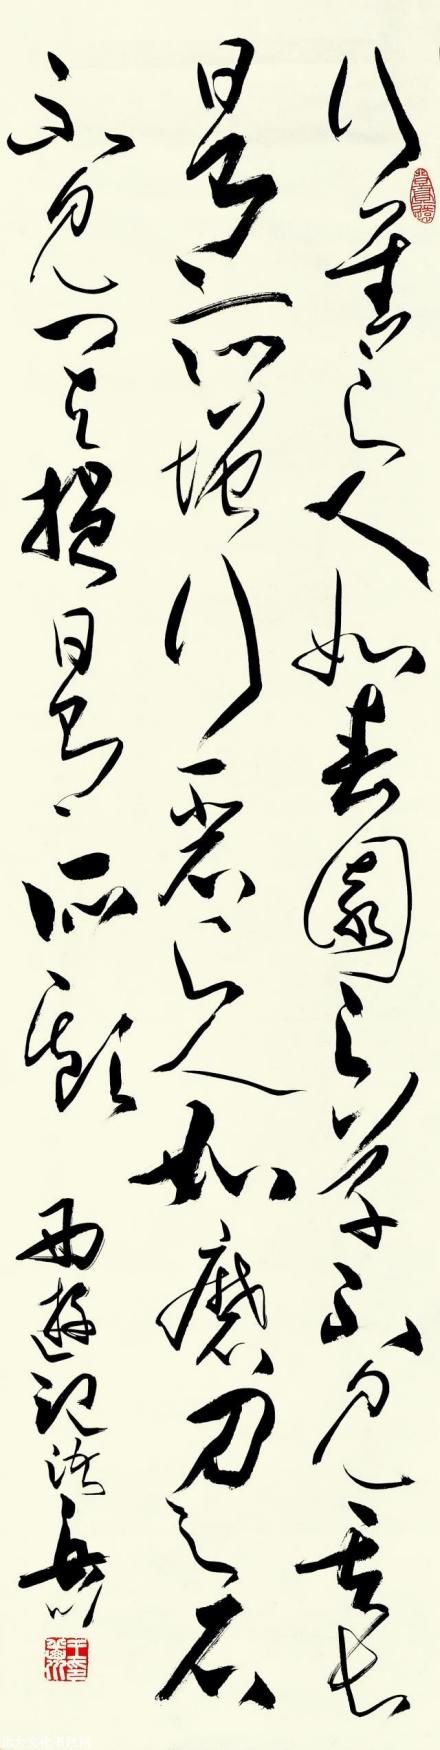 行善之人如春園之草不見其長
日有所增行惡之人如磨刀之石
不見其損日有所虧
西遊記語